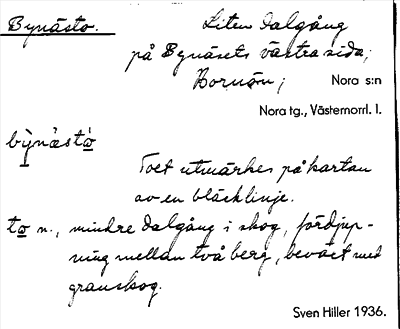 Bynästo. Liten dalgång
på Bynäsets västra sida;
Bornön; Nora s:n
Nora tg., Västernorrl. l.
by̍nàstò̠
Toet utmärkes på kartan
av en bläcklinje.
to̠ n., mindre dalgång i skog, fördjup-
ning mellan två berg, beväxt med
granskog.
Sven Hiller 1936.